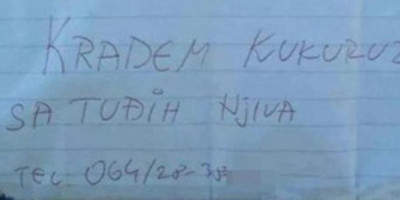 KRADEM KUKURUZ
SA TUĐIH NJIVA
TEL. 064/28-38